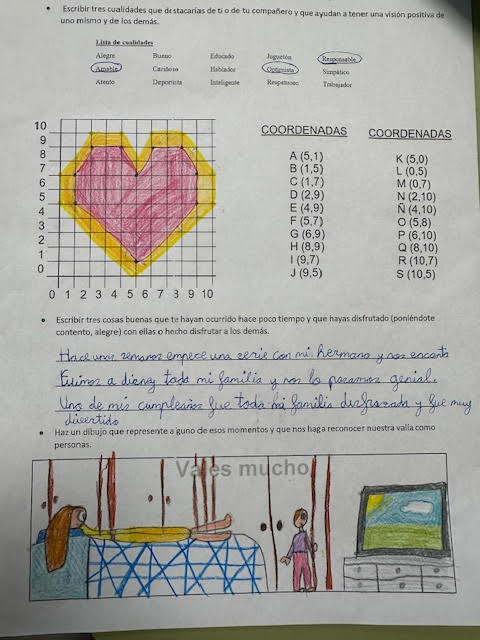 • Escribir tres cualidades que destacarías de ti o de tu compañero y que ayudan a tener una visión positiva de
uno mismo y de los demás.
Lista de cualidades
Alegre Bueno Educado Juguetón Responsable
Amable Cariñoso Hablador Optimista Simpático
Atento Deportista Inteligente Respetuoso Trabajador
COORDENADAS COORDENADAS
A (5,1) K (5,0)
B (1,5) L (0,5)
C (1,7) M (0,7)
D (2,9) N (2,10)
E (4,9) Ñ (4,10)
F (5,7) O (5,8)
G (6,9) P (6,10)
H (8,9) Q (8,10)
I (9,7) R (10,7)
J (9,5) S (10,5)
10
9
8
7
6
5
4
3
2
1
0
0 1 2 3 4 5 6 7 8 9 10
• Escribir tres cosas buenas que te hayan ocurrido hace poco tiempo y que hayas disfrutado (poniéndote
contento, alegre) con ellas o hecho disfrutar a los demás.
Hace unas semanas empece una serie con mi hermano y nos encanta
Fuimos a disney toda mi familia y nos lo pasamos genial.
Uno de mis cumpleaños fue toda mi familia disfrazada y fue muy
divertido
• Haz un dibujo que represente a guno de esos momentos y que nos haga reconocer nuestra valía como
personas.
Vales mucho